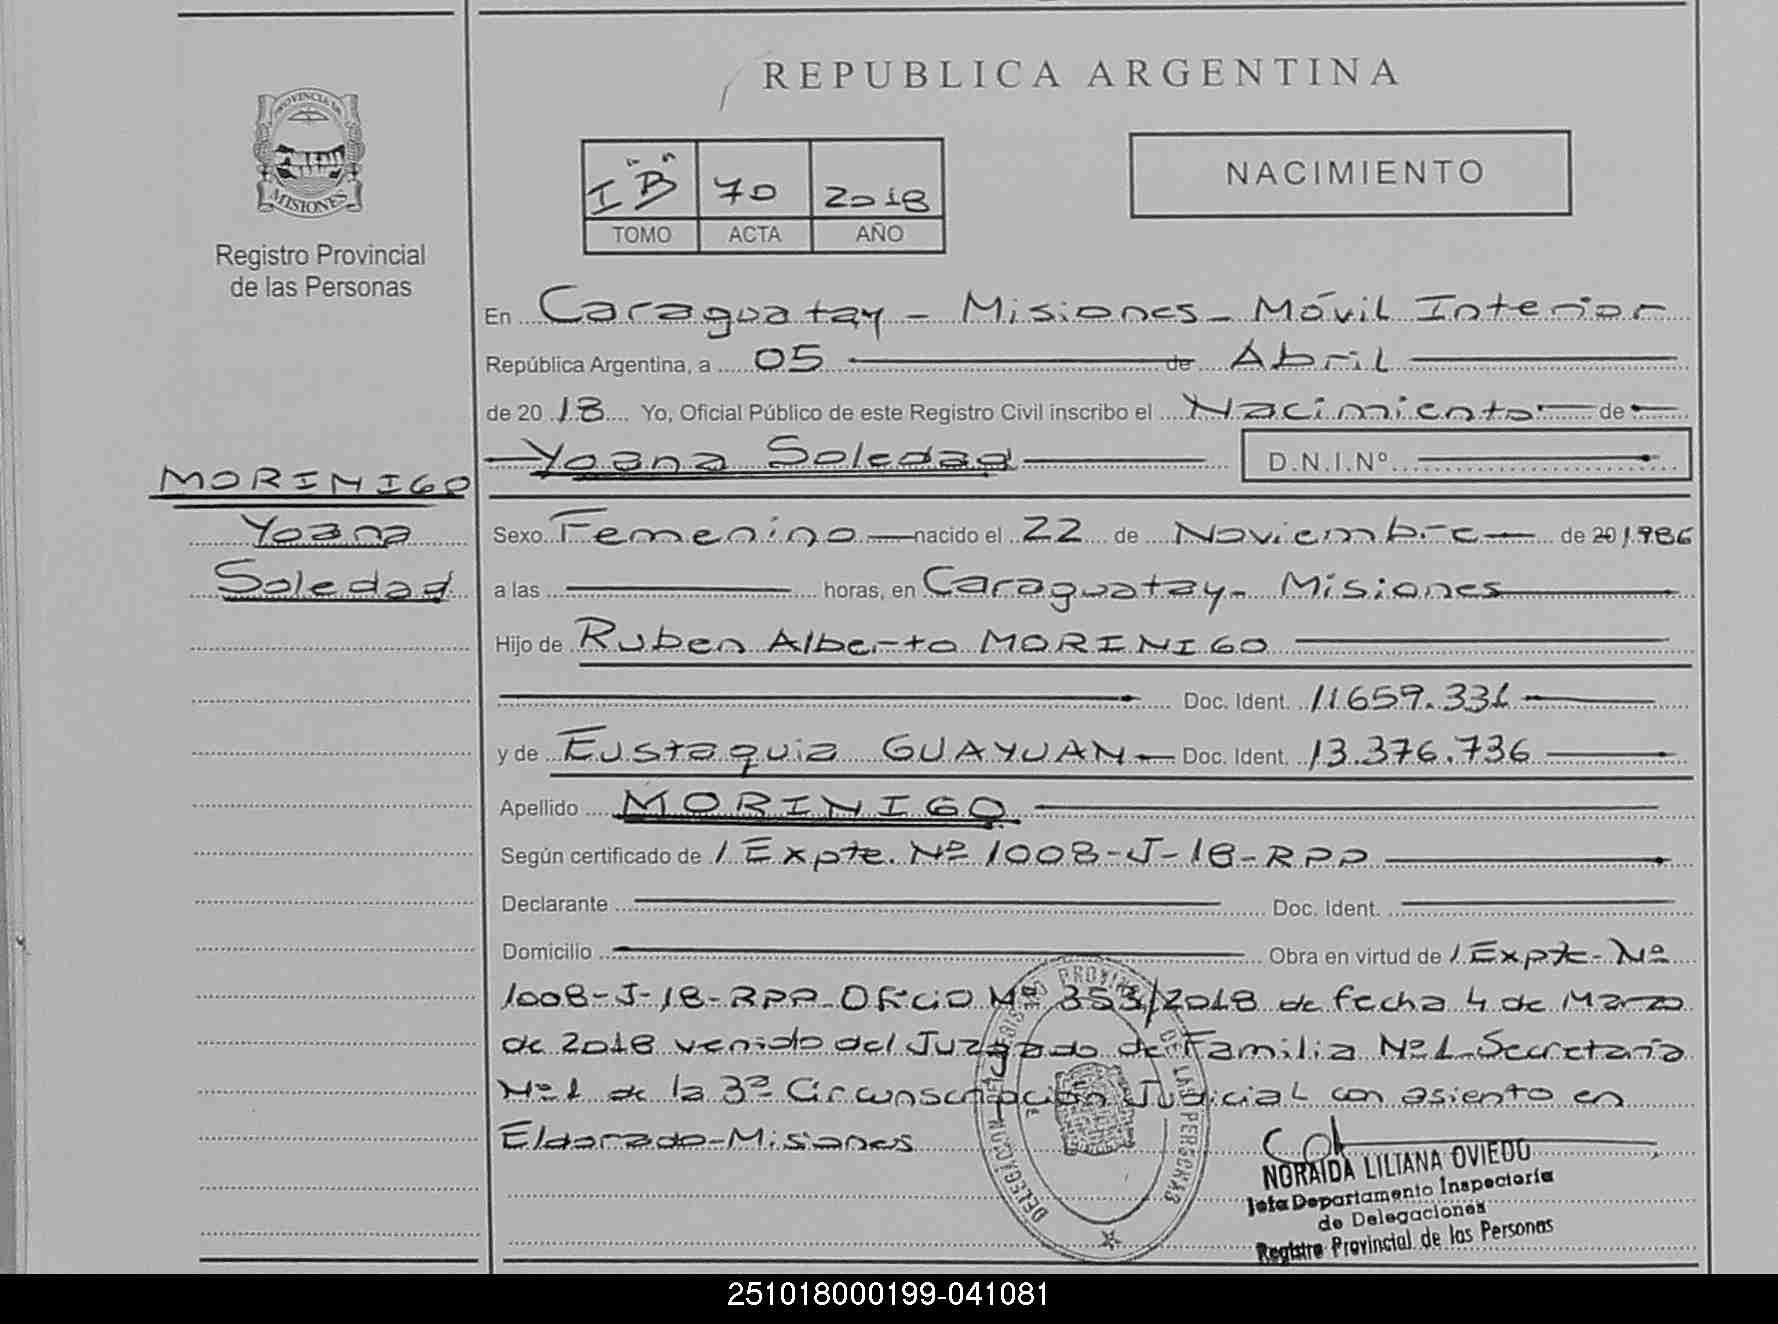 REPUBLICA ARGENTINA
PROVINCIA DE
MISIONES
Registro Provincial
de las Personas
I "B" 70 2018
TOMO ACTA AÑO
NACIMIENTO
En Caraguatay - Misiones - Móvil Interior
República Argentina, a 05 de Abril
de 2018 Yo, Oficial Público de este Registro Civil inscribo el Nacimiento de
Yoana Soledad D.N.I.Nº
MORINIGO
Yoana
Soledad
Sexo Femenino nacido el 22 de Noviembre de 20 1986
a las horas, en Caraguatay - Misiones
Hijo de Ruben Alberto MORINIGO
Doc. Ident. 11.659.331
y de Eustaquia GUAYUAN Doc. Ident. 13.376.736
Apellido MORINIGO
Según certificado de / Expte. Nº 1008-J-18-RPP
Declarante Doc. Ident.
Domicilio Obra en virtud de / Expte. Nº
1008-J-18-RPP Oficio Nº 353/2018 de fecha 4 de Marzo
de 2018 venido del Juzgado de Familia Nº 1 Secretaría
Nº 1 de la 3ª Circunscripción Judicial con asiento en
Eldorado-Misiones
NORAIDA LILIANA OVIEDO
Jefa Departamento Inspectoría
de Delegaciones
Registro Provincial de las Personas
251018000199-041081